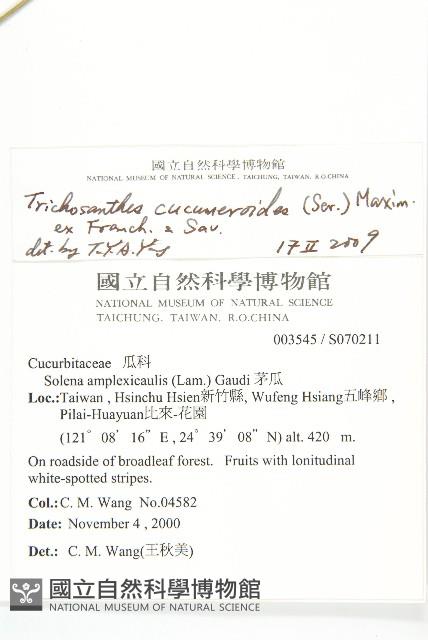 國立自然科學博物館
NATIONAL MUSEUM OF NATURAL SCIENCE, TAICHUNG, TAIWAN, R.O.CHINA
Trichosanthes cucumeroides (Ser.) Maxim.
ex Franch. & Sav.
det. by T.Y.A. Yang 17 II 2009
國立自然科學博物館
NATIONAL MUSEUM OF NATURAL SCIENCE
TAICHUNG, TAIWAN, R.O.CHINA
003545 / S070211
Cucurbitaceae 瓜科
Solena amplexicaulis (Lam.) Gaudi 茅瓜
Loc.:Taiwan , Hsinchu Hsien新竹縣, Wufeng Hsiang五峰鄉 ,
Pilai-Huayuan比來-花園
(121° 08’ 16” E , 24° 39’ 08” N) alt. 420 m.
On roadside of broadleaf forest. Fruits with lonitudinal
white-spotted stripes.
Col.: C. M. Wang No.04582
Date: November 4 , 2000
Det.: C. M. Wang(王秋美)
國立自然科學博物館
NATIONAL MUSEUM OF NATURAL SCIENCE